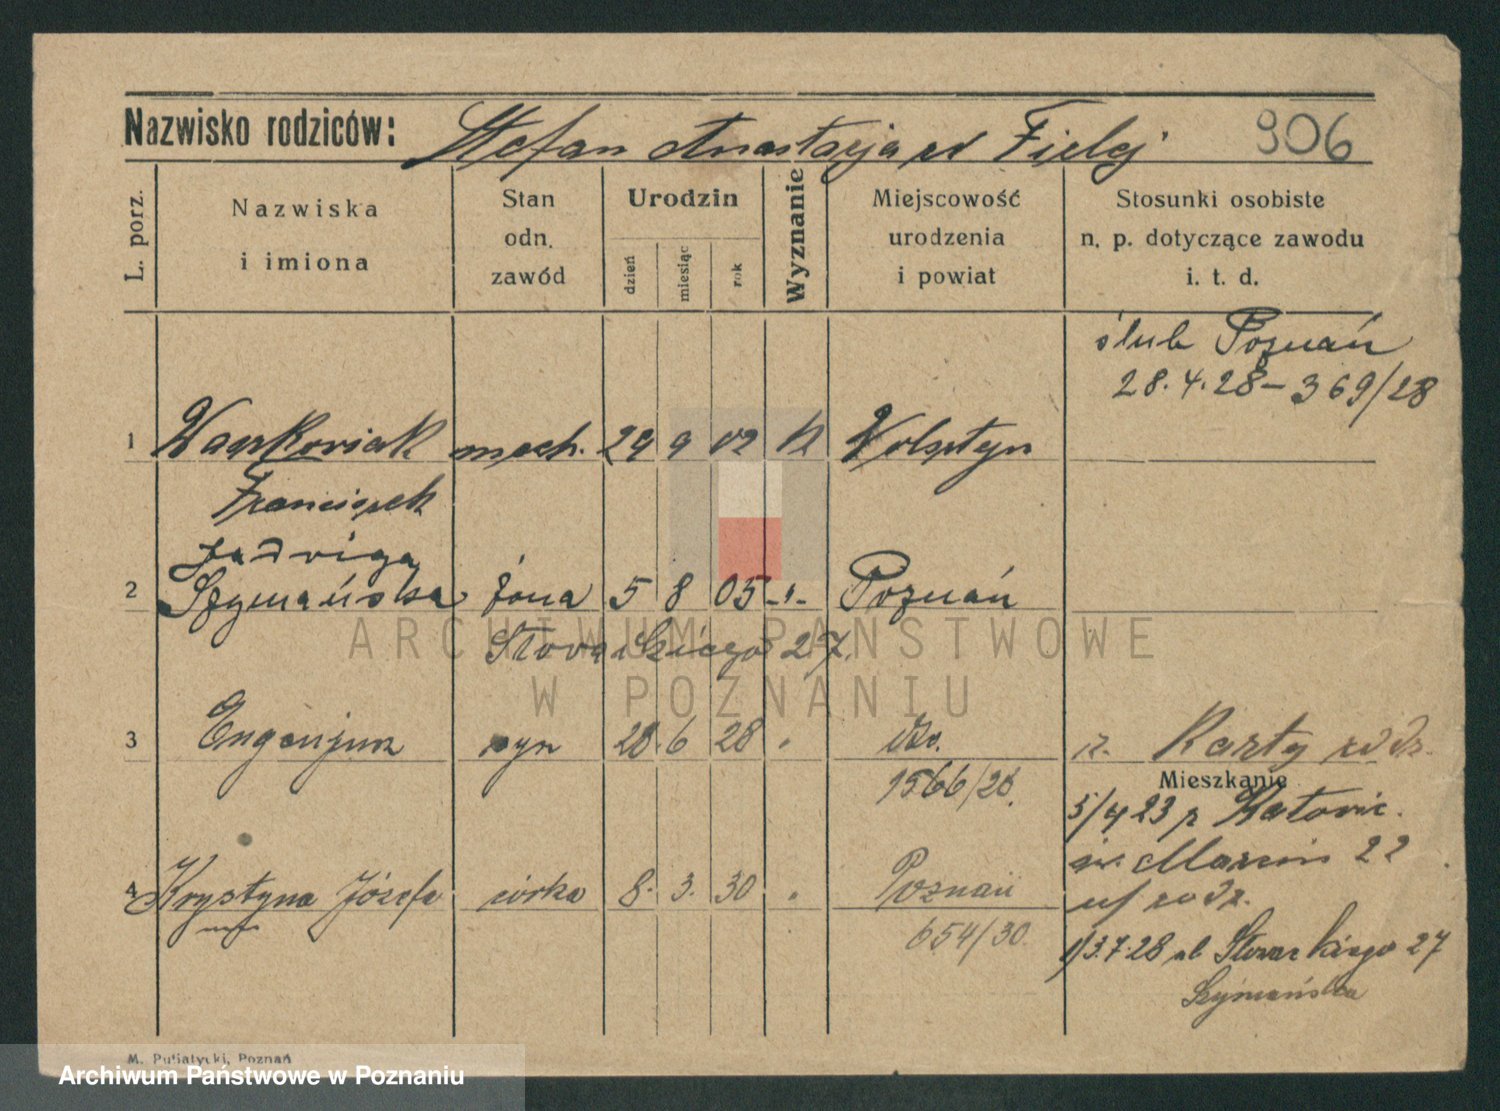 Nazwisko rodziców: Stefan Anastazja zd Fielej 906
L. porz.
Nazwiska
i imiona
Stan
odn.
zawód
Urodzin
dzień
miesiąc
rok
Wyznanie
Miejscowość
urodzenia
i powiat
Stosunki osobiste
n. p. dotyczące zawodu
i. t. d.
ślub Poznań
28.4.28 – 369/28
1 Waszkowiak mech. 29 9 02 K Wolsztyn
Franciszek
Jadwiga
2 Szymańska żona 5 8 05 -„- Poznań
Słowackiego 27.
3 Eugenjusz syn 28 6 28 „
1566/28.
z. Karty rodz.
Mieszkanie
5/4 23 z Katowic.
św. Marcin 22
4 Krystyna Józefa córka 8. 3. 30 „ Poznań
654/30.
u/ rodz.
3.7.28 ul Słowackiego 27
Szymańska
ARCHIWUM PAŃSTWOWE
W POZNANIU
M. Putiatycki, Poznań
Archiwum Państwowe w Poznaniu